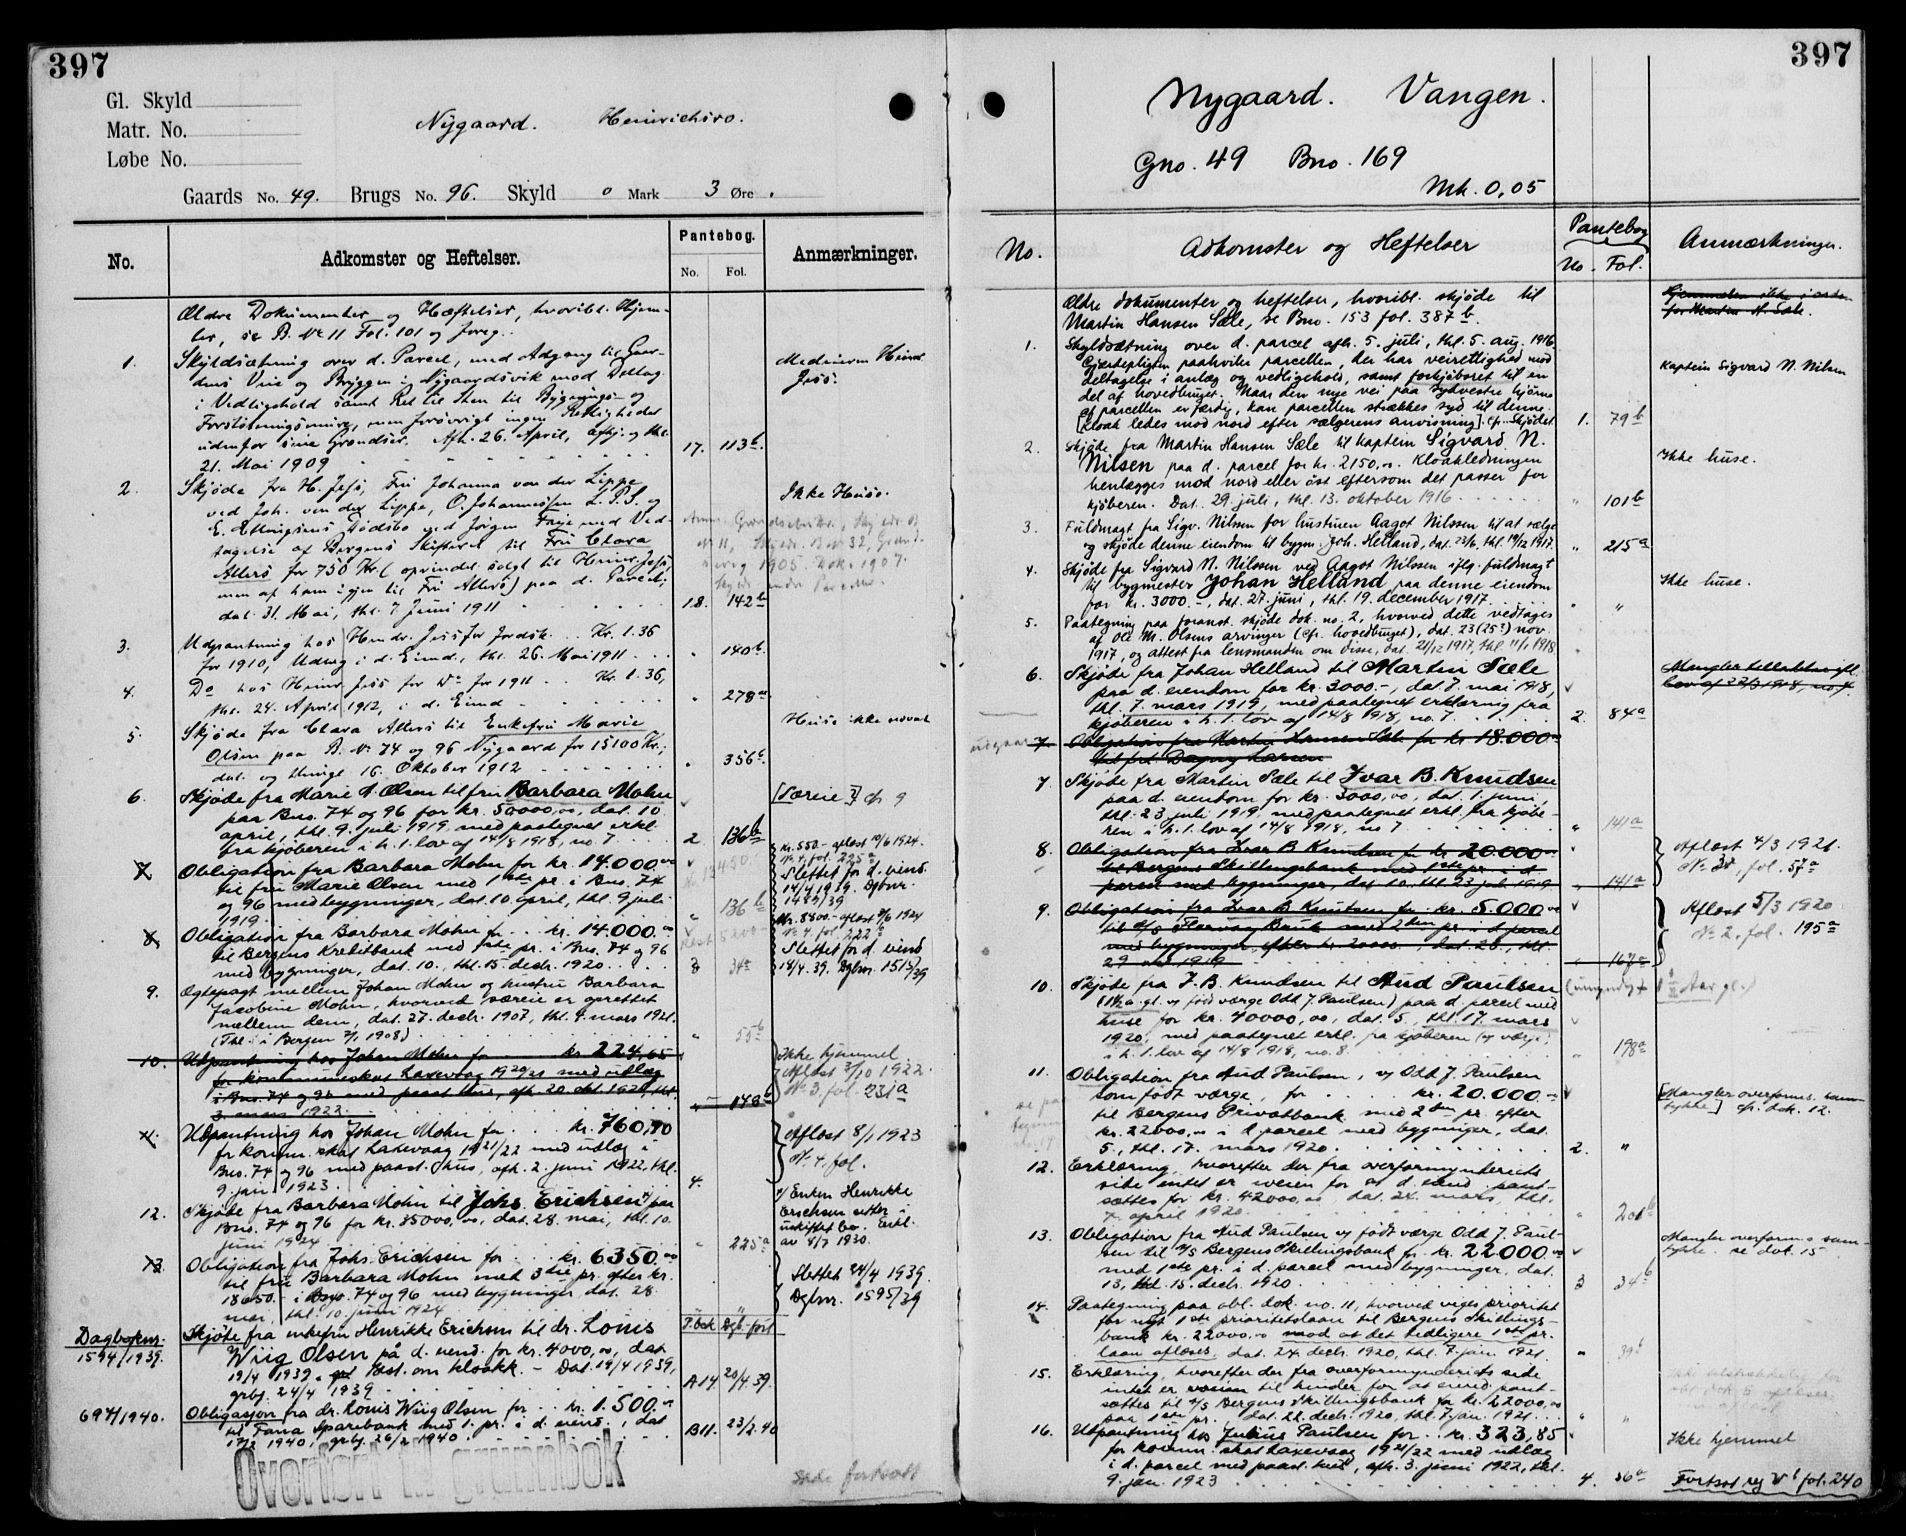 397
Gl. Skyld
Matr. No.
Løbe No.
Nygaard. Heinrichsro.
Gaards No. 49. Brugs No. 96. Skyld 0 Mark 3 Øre.
No. Adkomster og Heftelser. Pantebog. No. Fol. Anmærkninger.
Ældre Dokumenter og Hæftelser, hvoribl. Hjem-
ler, se B. No 11 Fol. 101 og foreg.
1. Skyldsætning over d. Parcel, med Adgang til Gaar-
dens Veie og Bryggen i Nygaardsvik mod Deltag.
i Vedligehold samt Ret til Sten til Bygnings- og
udenfor sine Grændser. Afh. 26. April, thl.
21. Mai 1909 17. 113b.
2. Skjøde fra H. Jess, Fru Johanna von der Lippe
ved Joh. von der Lippe, O. Johannessen L. P. S. og
E. Ellingsens Dødsbo ved Jørgen Frije med Ved-
tagelse af Bergens Skifteret til Fru Clara
Allers for 750 Kr. (oprindel. solgt til Heinr. Jess,
men af ham igjen til Fru Allers) paa d. Parcel;
dat. 31. Mai, thl. 7 Juni 1911 18. 142b
Ikke Huse.
3. Udpantning hos Hendr. Jess for Jordsk. .. Kr. 1.36
for 1910, Udlæg i d. Eiend., thl. 26. Mai 1911 140b.
4. Do hos Heinr. Jess for Do for 1911 .. Kr. 1.36,
thl. 24. April 1912, i d. Eiend 278a
5. Skjøde fra Clara Allers til Enkefru Marie
Olsen paa B. No 74 og 96 Nygaard for 15100 Kr.;
dat. og thingl. 16. Oktober 1912 356b.
6. Skjøde fra Marie M. Olsen til fru Barbara Mohn
paa Bno. 74 og 96 for kr. 50000,00, dat. 10
april, thl. 9. juli 1919, med paategnet erkl.
fra kjøberen i h. t. lov af 14/8 1918, no 7 2 136b
[Særeie] cfr 9
7. Obligation fra Barbara Mohn for kr. 14.000.00
til fru Marie Olsen med 1ste pr. i Bno. 74
og 96 med bygninger, dat. 10 april, thl. 9 juli
1919. 136b
kr. 550.- aflæst 10/6 1924.
No 4, fol. 225a
Slettet for d. eiend.
14/4 1939. Dgbnr.
8. Obligation fra Barbara Mohn for .. kr. 14.000.00
til Bergens Kreditbank med 1ste pr. i Bno. 74 og 96
med bygninger, dat. 10., thl. 15 decbr. 1920 3 34a
Slettet for d. eiend
14/4. 39. Dgbnr. 1515/39
9. Ægtepagt mellem Johan Mohn og hustru Barbara
Jacobine Mohn, hvorved særeie er oprettet
mellem dem, dat. 27. decbr. 1907, thl. 4. mars 1921.
(Thl. i Bergen 7/1 1908) 55b
10. Udpantning hos Johan Mohn for kr. 224,65
for kommuneskat Laxevaag 1920/21 med udlæg
i Bno. 74 og 96 med paast. hus, afh. 20. okt. 1921, thl.
3. mars 1922. 148b
Ikke hjemmel
Aflæst 2/10 1922.
No 3. fol. 231a
11. Udpantning hos Johan Mohn for .. kr. 760,90
for komm. skat Laxevaag 1921/22 med udlæg i
Bno. 74 og 96 med paast. hus, afh. 2. juni 1922, thl.
9 jan. 1923. 4.
Aflæst 8/1 1923
No. 4. fol.
12. Skjøde fra Barbara Mohn til Johs. Erichsen x) paa
Bno. 74 og 96 for kr. 35000,00, dat. 28. mai, thl. 10.
juni 1924 225a
x) Enken Henrikke
Erichsen sitter i
uskiftet bo. Erkl.
av 8/7 1930.
13. Obligation fra Johs. Erichsen for ... kr. 6350.00
til fru Barbara Mohn med 3die pr. efter kr.
18650.- i Bno. 74 og 96 med bygninger dat. 28.
mai, thl. 10. juni 1924
Slettet 24/4 1939.
Dgbnr. 1595/39
T. bok Dgb.-ført
Dagboknr.
1594/1939. Skjøte fra enkefru Henrikke Erichsen til dr. Louis
Wiig Olsen på d. eiend. for kr. 4000,00, dat
19/4 1939. Best. om kloakk. - Dat. 19/4 1939,
grbf. 24/4 1939 A 14. 20/4.39.
697/1940. Obligasjon fra dr. Louis Wiig Olsen for .. kr. 1.500.00
til Fana Sparebank med 1. pr. i d. eiend., dat
17/2 1940, grbf. 26/2 1940. B 11. 23/2.40
Overført til grunnbok
397
Nygaard. Vangen.
Gno. 49 Bno. 169
Mk. 0,05
No. Adkomster og Heftelser Pantebog No. Fol. Anmærkninger.
Ældre dokumenter og heftelser, hvoribl. skjøde til
Martin Hansen Sæle, se Bno. 153 fol. 387b.
Hjemmelen ikke i orden
for Martin H. Sæle.
1. Skyldsætning over d. parcel afh. 5. juli, thl. 5. aug. 1916.
Gjerdepligten paahviler parcellen, der har veirettighed mod
deltagelse i anlæg og vedligehold, samt forkjøbsret til en
del af hovedbruget. Naar den nye vei paa sydvestre hjørne
af parcellen er færdig, kan parcellen strækkes syd til denne.
[Kloak ledes mod nord efter sælgerens anvisning]. Cfr. Skjødet 1. 79b
Kaptein Sigvard N. Nilsen
2. Skjøde fra Martin Hansen Sæle til kaptein Sigvard N.
Nilsen paa d. parcel for kr. 2150,00. Kloakledningen
henlægges mod nord eller øst eftersom det passer for
kjøberen. Dat. 29. juli, thl. 13. oktober 1916 " 101b
Ikke huse.
3. Fuldmagt fra Sigv. Nilsen for hustruen Aagot Nilssen til at sælge
og skjøde denne eiendom til bygm. Joh. Helland, dat. 23/6, thl. 19/12 1917. " 215a
4. Skjøde fra Sigvard N. Nilssen ved Aagot Nilssen iflg. fuldmagt
til bygmester Johan Helland paa denne eiendom
for kr. 3000.-, dat. 27. juni, thl. 19. december 1917. " "
Ikke huse.
5. Paategning paa foranst. skjøde dok. no. 2, hvorved dette vedtages
af Ole M. Olsens arvinger (cfr. hovedbruget), dat. 23 (25?) nov.
1917, og attest fra lensmanden om disse, dat. 21/12 1917, thl. 11/1 1918
6. Skjøde fra Johan Helland til Martin Sæle
paa d. eiendom for kr. 3000.-, dat. 7. mai 1918,
thl. 7. mars 1919, med paategnet erklæring fra
kjøberen i h. t. lov af 14/8 1918, no. 7 2. 84a
udgaar 7. Obligation fra Martin Hansen Sæle for kr 18.000.00
til frk Dagny Larsen
7 Skjøde fra Martin Sæle til Ivar B. Knudsen
paa d. eiendom for kr. 3000,00, dat. 1. juni,
thl. 23 juli 1919, med paategnet erkl. fra kjøbe-
ren i h. t. lov af 14/8 1918, no 7 " 141a
8. Obligation fra Ivar B. Knudsen for kr. 20.000.00
til Bergens Skillingsbank med 1ste pr. i d.
parcel med bygninger, dat. 10., thl. 23 juli 1919 " 141a
Aflæst 4/3 1921.
No 3, fol. 57a
9. Obligation fra Ivar B. Knudsen for kr. 5.000.00
til A/S Florvaag Bruk med 2den pr. i d. parcel
med bygninger, efter kr. 20000.-, dat. 28., thl.
29 1919 " 167a
Aflæst 5/3 1920
No 2. fol. 195a
10. Skjøde fra I. B. Knudsen til Aud Paulsen
(1 1/2 a. gl. v/ født værge Odd J. Paulsen) paa d. parcel med
huse for kr. 40000,00, dat. 5., thl. 17. mars
1920, med paategnet erkl. fra kjøberen v/ værge,
i h. t. lov af 14/8 1918, no. 8. " 198a
11. Obligation fra Aud Paulsen, v/ Odd J. Paulsen
som født værge, for ... kr. 20.000.-
til Bergens Privatbank med 2den pr. efter
kr. 22000,00 i d. parcel med bygninger, dat.
5., thl. 17. mars 1920 2. "
[Mangler overforms. sam-
tykke] cfr. dok. 12.
12. Erklæring, hvorefter der fra overformynderiets
side intet er iveien for at d. eiend. pant-
sættes for kr. 42000,00, dat. 24. mars, thl.
7. april 1920. " 201b
13. Obligation fra Aud Paulsen v/ født værge Odd J. Paul-
sen til A/S Bergens Skillingsbank for kr. 22000.00
med 1ste pr. i d. parcel med bygninger, dat.
13., thl. 15. decbr. 1920. 3 34b
Mangler overform.s sam-
tykke. se dok. 15
14. Paategning paa obl. dok. no. 11, hvorved viges prioritet
for nyt 1ste prioritetslaan til Bergens Skillings-
bank kr. 22000.00 mod at det tidligere 1ste pr.
laan aflæses, dat. 24. decbr. 1920, thl. 7. jan. 1921. " 39b
15. Erklæring, hvorefter der fra overformynderiets side
intet er iveien til hinder for at eiend. pant-
sættes til A/S Bergens Skillingsbank for kr. 22000,00
paa 1ste pr. dat. 22. decbr. 1920, thl. 7. jan. 1921 ... " "
16. Udpantning hos Julius Paulsen for .. kr. 323,85
for komm. skat Laxevaag 1921/22 med udlæg
i d. parcel med paast. hus, afh. 3. juni 1922, thl.
9. jan. 1923 4. 36a
Ikke hjemmel
Fortsat reg V1 fol. 240